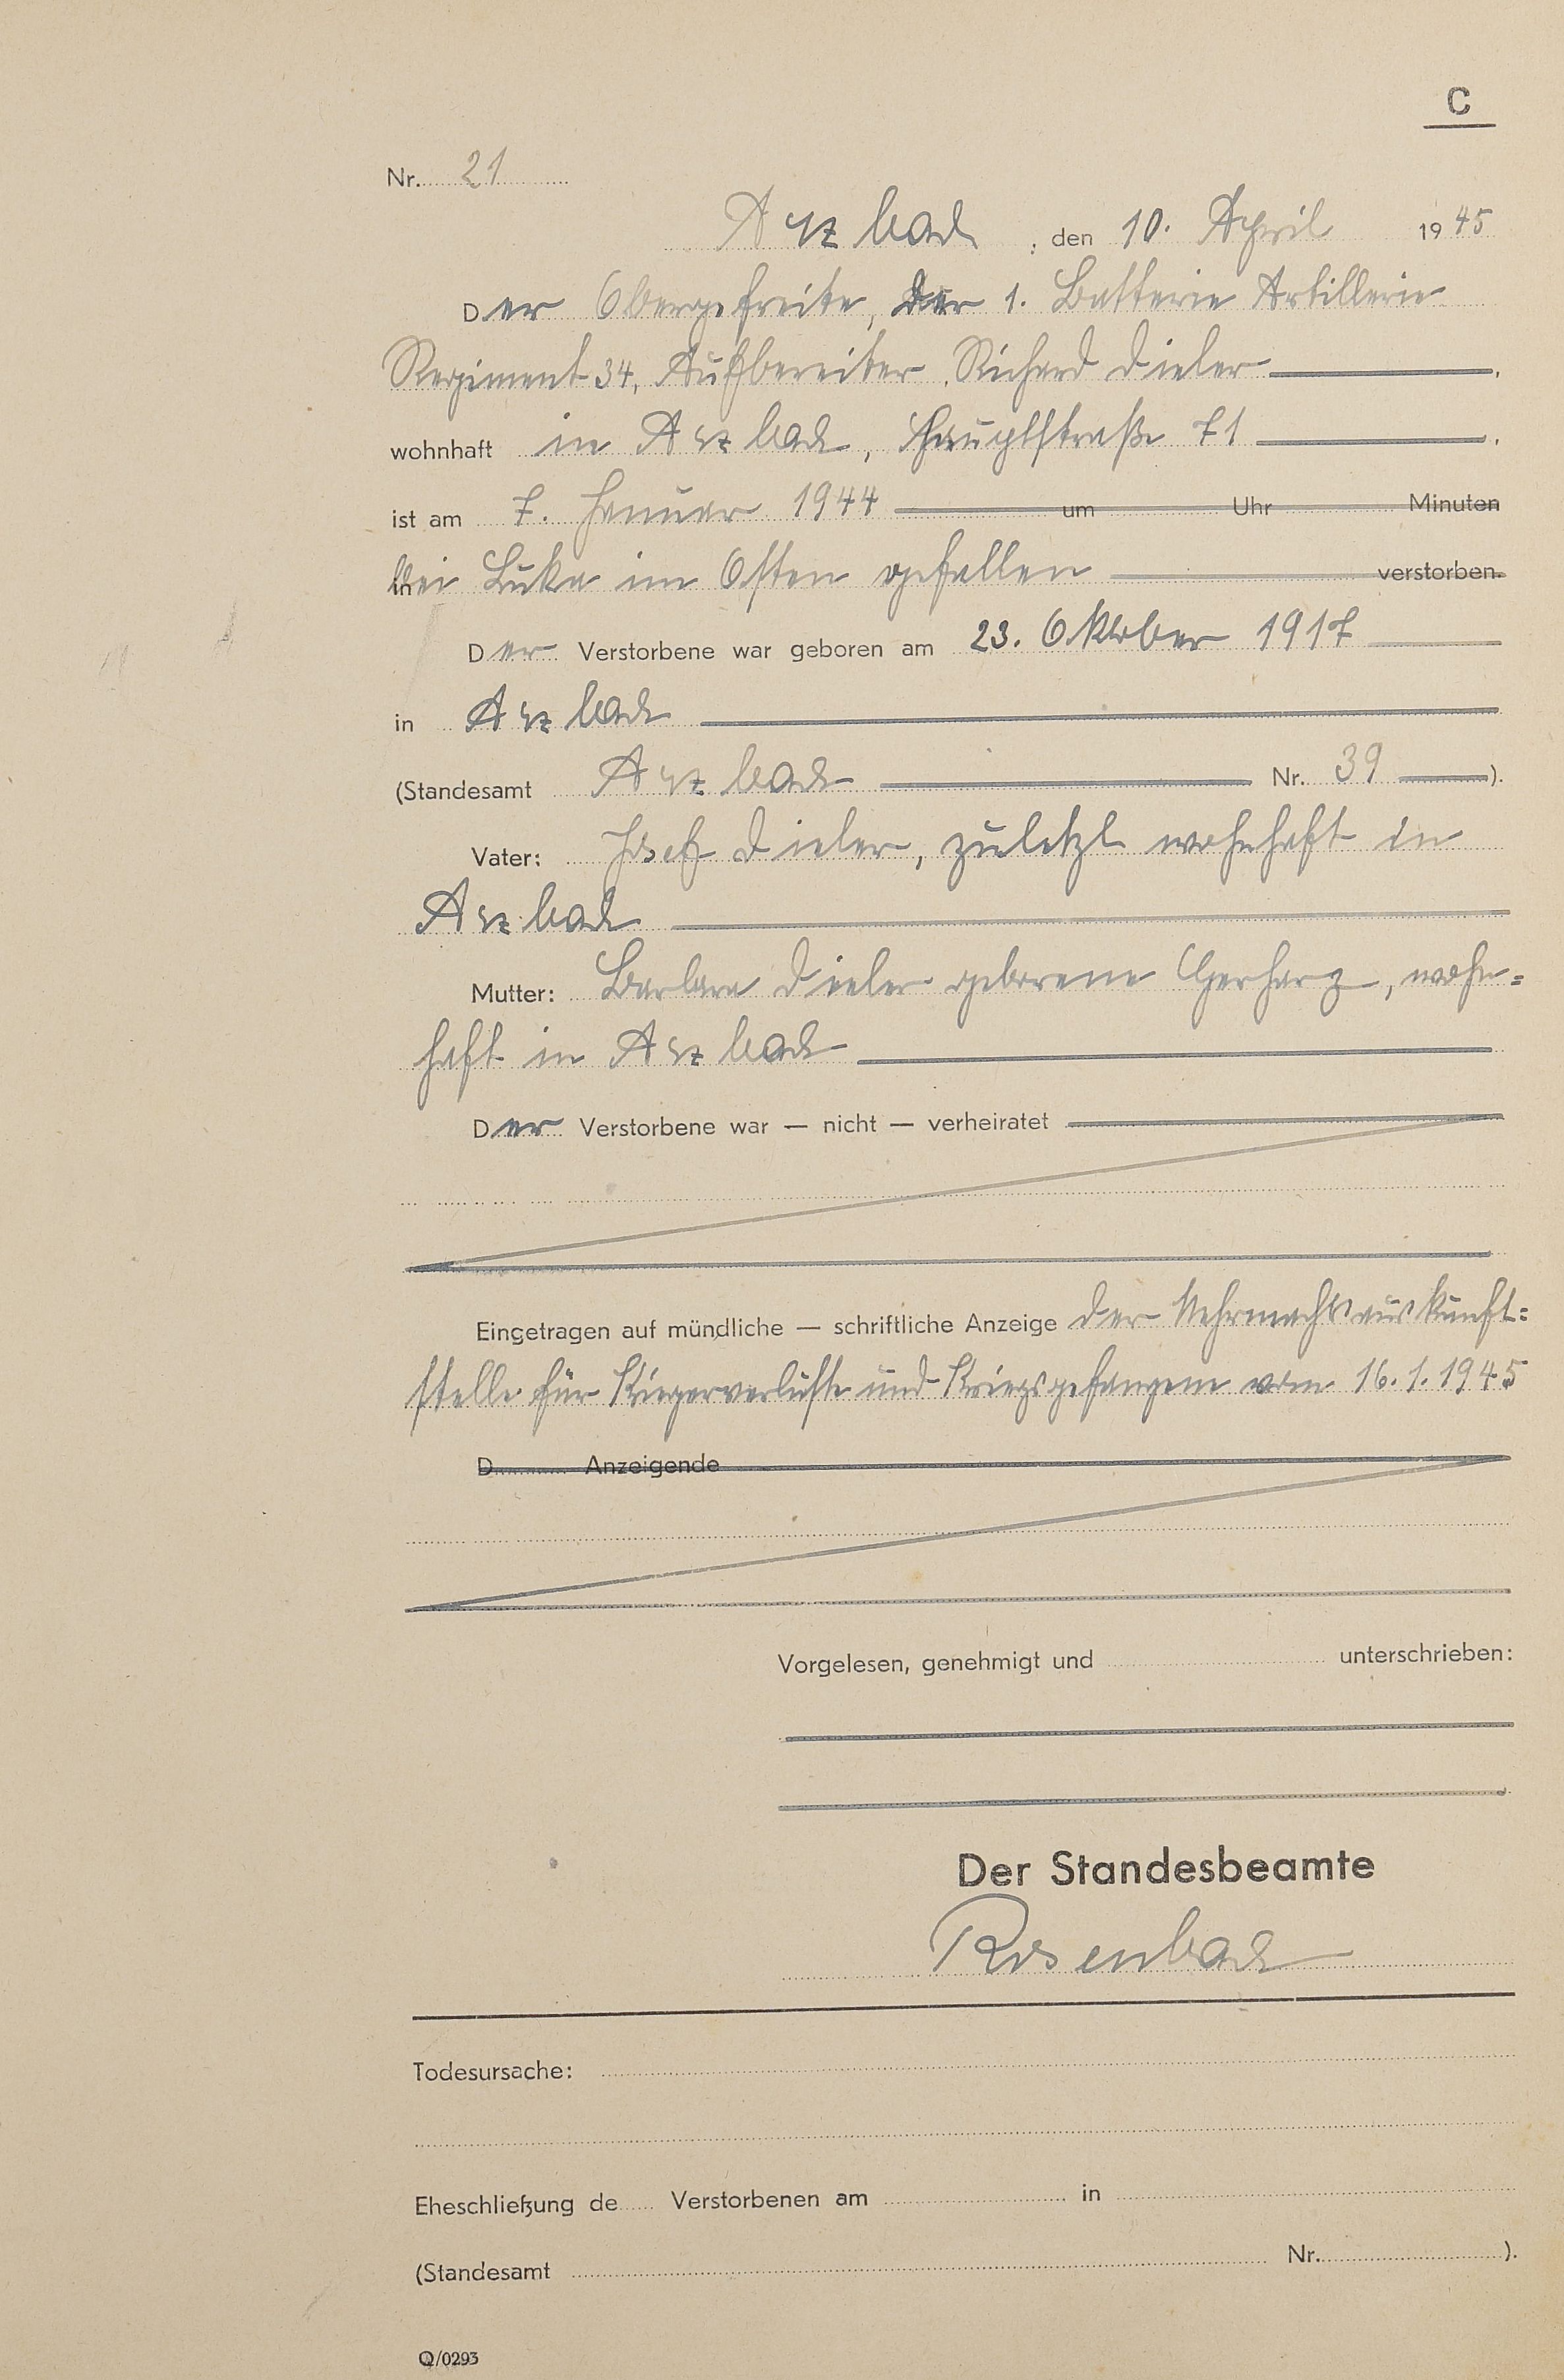 C
Nr. 21
Arzbach, den 10. April 1945
Der Obergefreite, der 1. Batterie Artillerie
Regiment 34, Aufbereiter Richard Dieler
wohnhaft in Arzbach, Hauptstraße 71
ist am 7. Januar 1944 um Uhr Minuten
in bei Luka im Osten gefallen verstorben.
Der Verstorbene war geboren am 23. Oktober 1917
in Arzbach
(Standesamt Arzbach Nr. 39).
Vater: Josef Dieler, zuletzt wohnhaft in
Arzbach
Mutter: Barbara Dieler geborene Gerharz, wohn=
haft in Arzbach
Der Verstorbene war — nicht — verheiratet
Eingetragen auf mündliche — schriftliche Anzeige der Wehrmachtsauskunft=
stelle für Kriegerverluste und Kriegsgefangene vom 16.1.1945
D Anzeigende
Vorgelesen, genehmigt und unterschrieben:
Der Standesbeamte
Rosenbach
Todesursache:
Eheschließung de Verstorbenen am in
(Standesamt Nr. ).
Q/0293